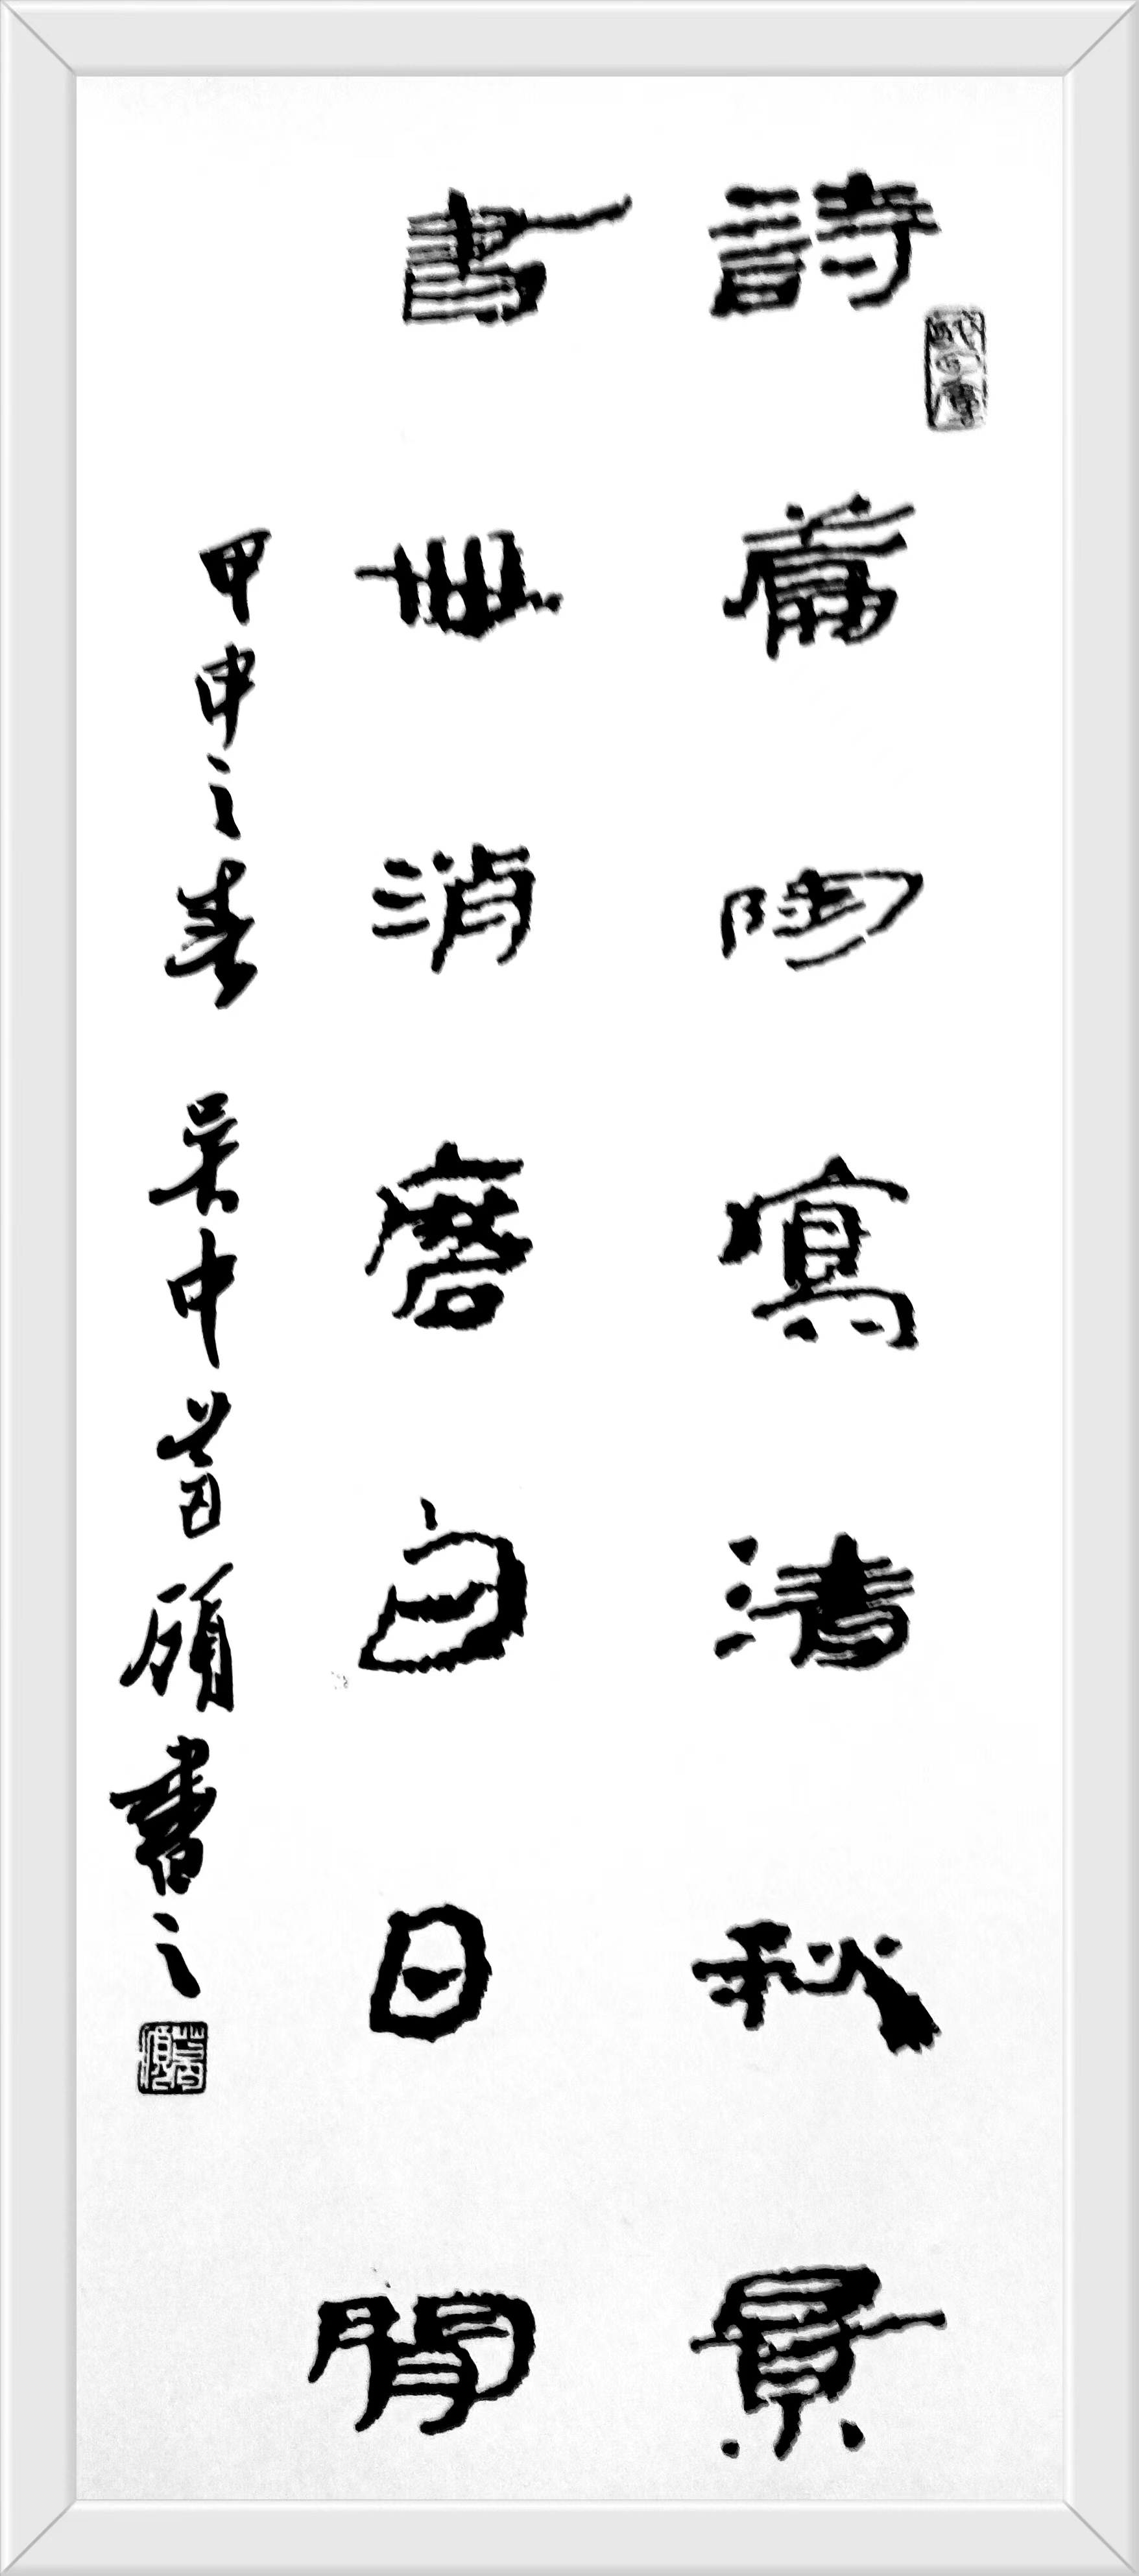 詩篇陶寫清秋景
書冊消磨白日閒
甲申之春 吴中書之